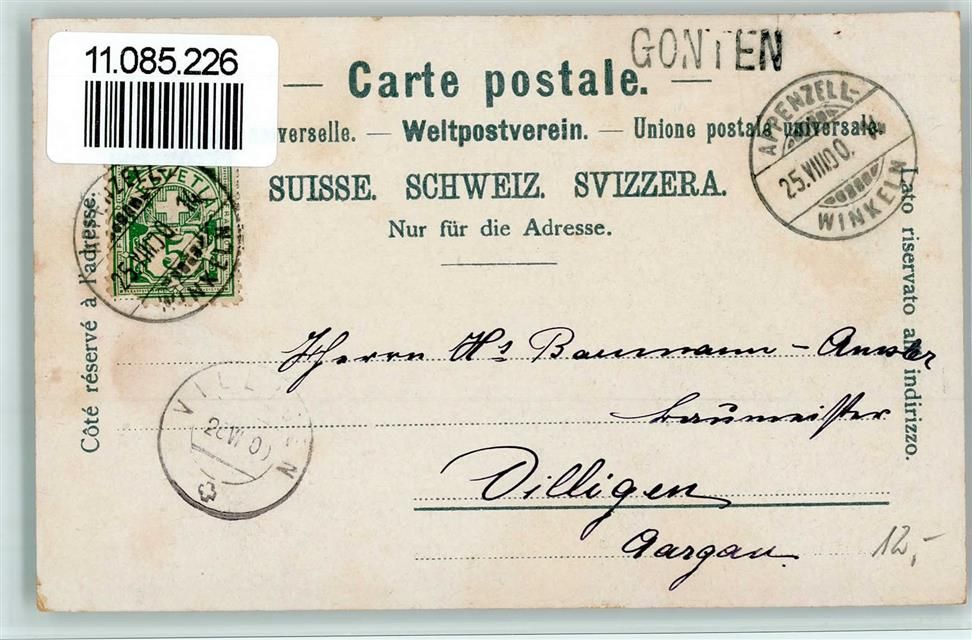 11.085.226
GONTEN
Carte postale.
verselle. — Weltpostverein. — Unione postale universale.
SUISSE. SCHWEIZ. SVIZZERA.
Nur für die Adresse.
Côté réservé à l'adresse.
Lato riservato all' indirizzo.
APPENZELL-
25.VIII.00.
WINKELN
HELVETIA
FRANCO
5
25.VIII.00
WINKELN
Herrn Hs Baumann-Anster
Baumeister
Villigen
Aargau
VILLIGEN
12,-